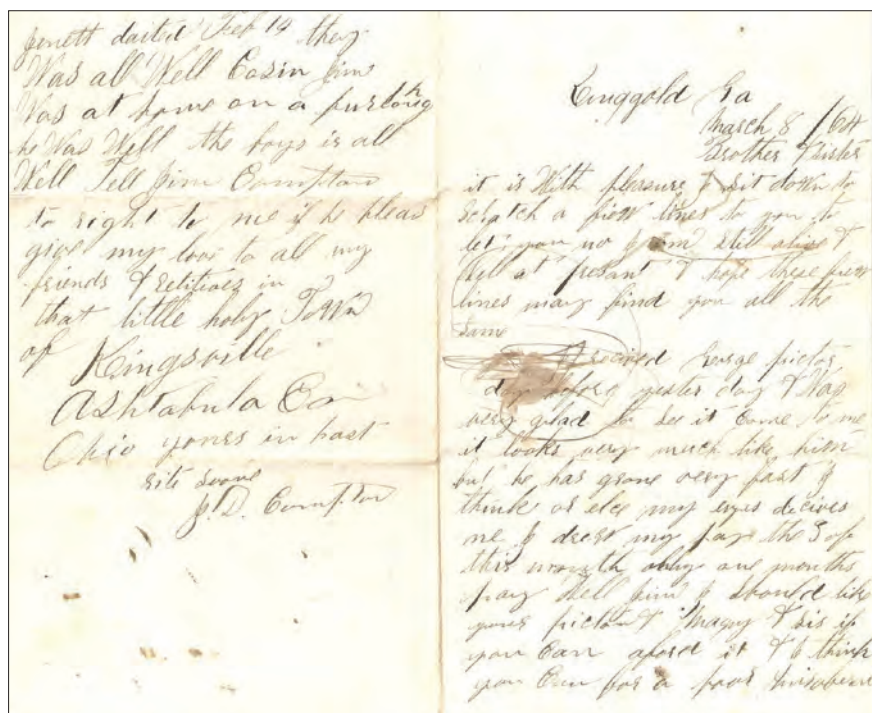 jenett daited Feb 14 they
Was all Well Cosin Jim
Was at home on a furlong
he Was Well the boys is all
Well Tell Jim Compton
to right to me if he pleas
give my love to all my
friends & relitives in
that little holy Town
of Kingsville
Ashtabula Co
Ohio yours in hast
rite soone
J. D. Compton
Ringgold Ga
March 8 /64
Brother & Sister
it is With pleasure I sit down to
scratch a few lines to you to
let you no I am still alive &
Well at presant & hope these few
lines may find you all the
same
I recived George pictor
day before yester day & Was
very glad to see it Come to me
it looks very much like him
but he has grone very fast I
think or else my eyes decives
me I drew my pay the 5 of
this month only one months
pay Well Jim I should like
your pictor & Magy & Sis if
you Can aford it & I think
you Can for a poor